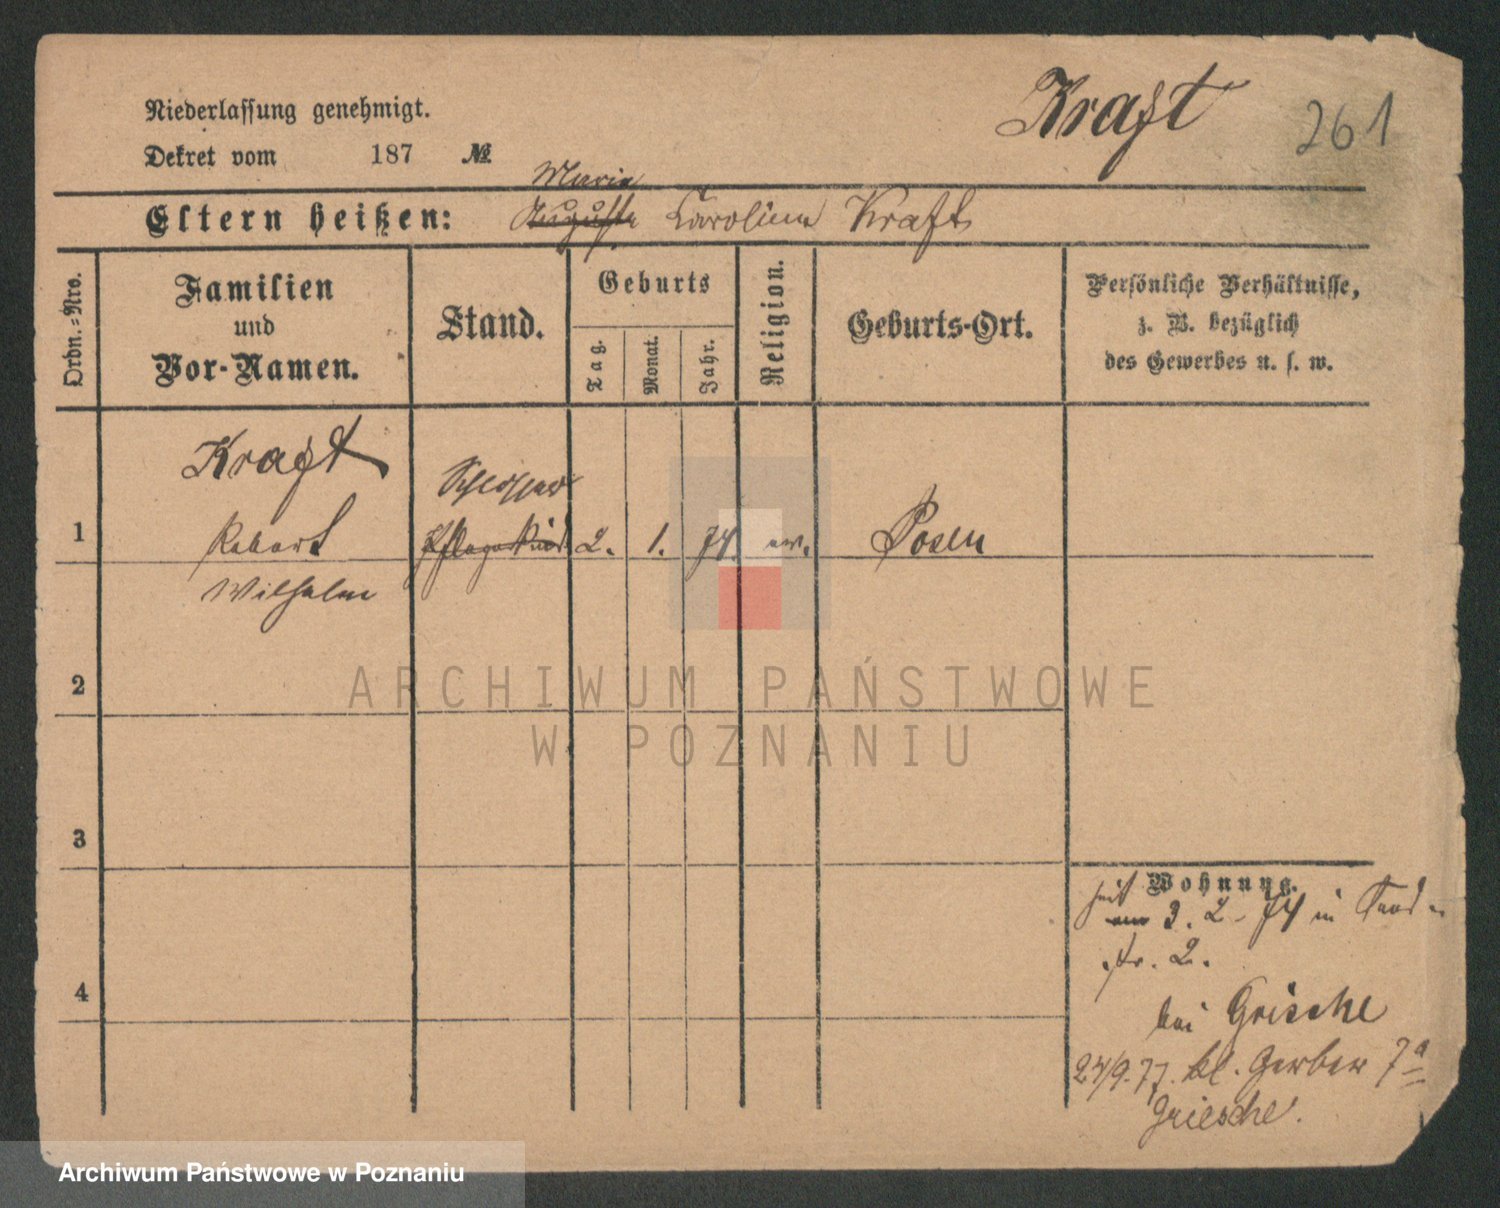 Kraft 261
Niederlassung genehmigt.
Dekret vom 187 №
Maria
Eltern heißen: Auguste Caroline Kraft
Ordn.=Nro.
Familien
und
Vor-Namen.
Stand.
Geburts
Tag.
Monat.
Jahr.
Religion.
Geburts-Ort.
Persönliche Verhältnisse,
z. B. bezüglich
des Gewerbes u. s. w.
Kraft
Schlosser
1 Robert Pflegekind 2. 1. 74. ev. Posen
Wilhelm
2
3
4
Wohnung.
seit
3. 2. 74 in Sand-
str. 2.
bei Grische
24/9.77. kl. Gerber 7a
Griesche.
ARCHIWUM PAŃSTWOWE
W POZNANIU
Archiwum Państwowe w Poznaniu